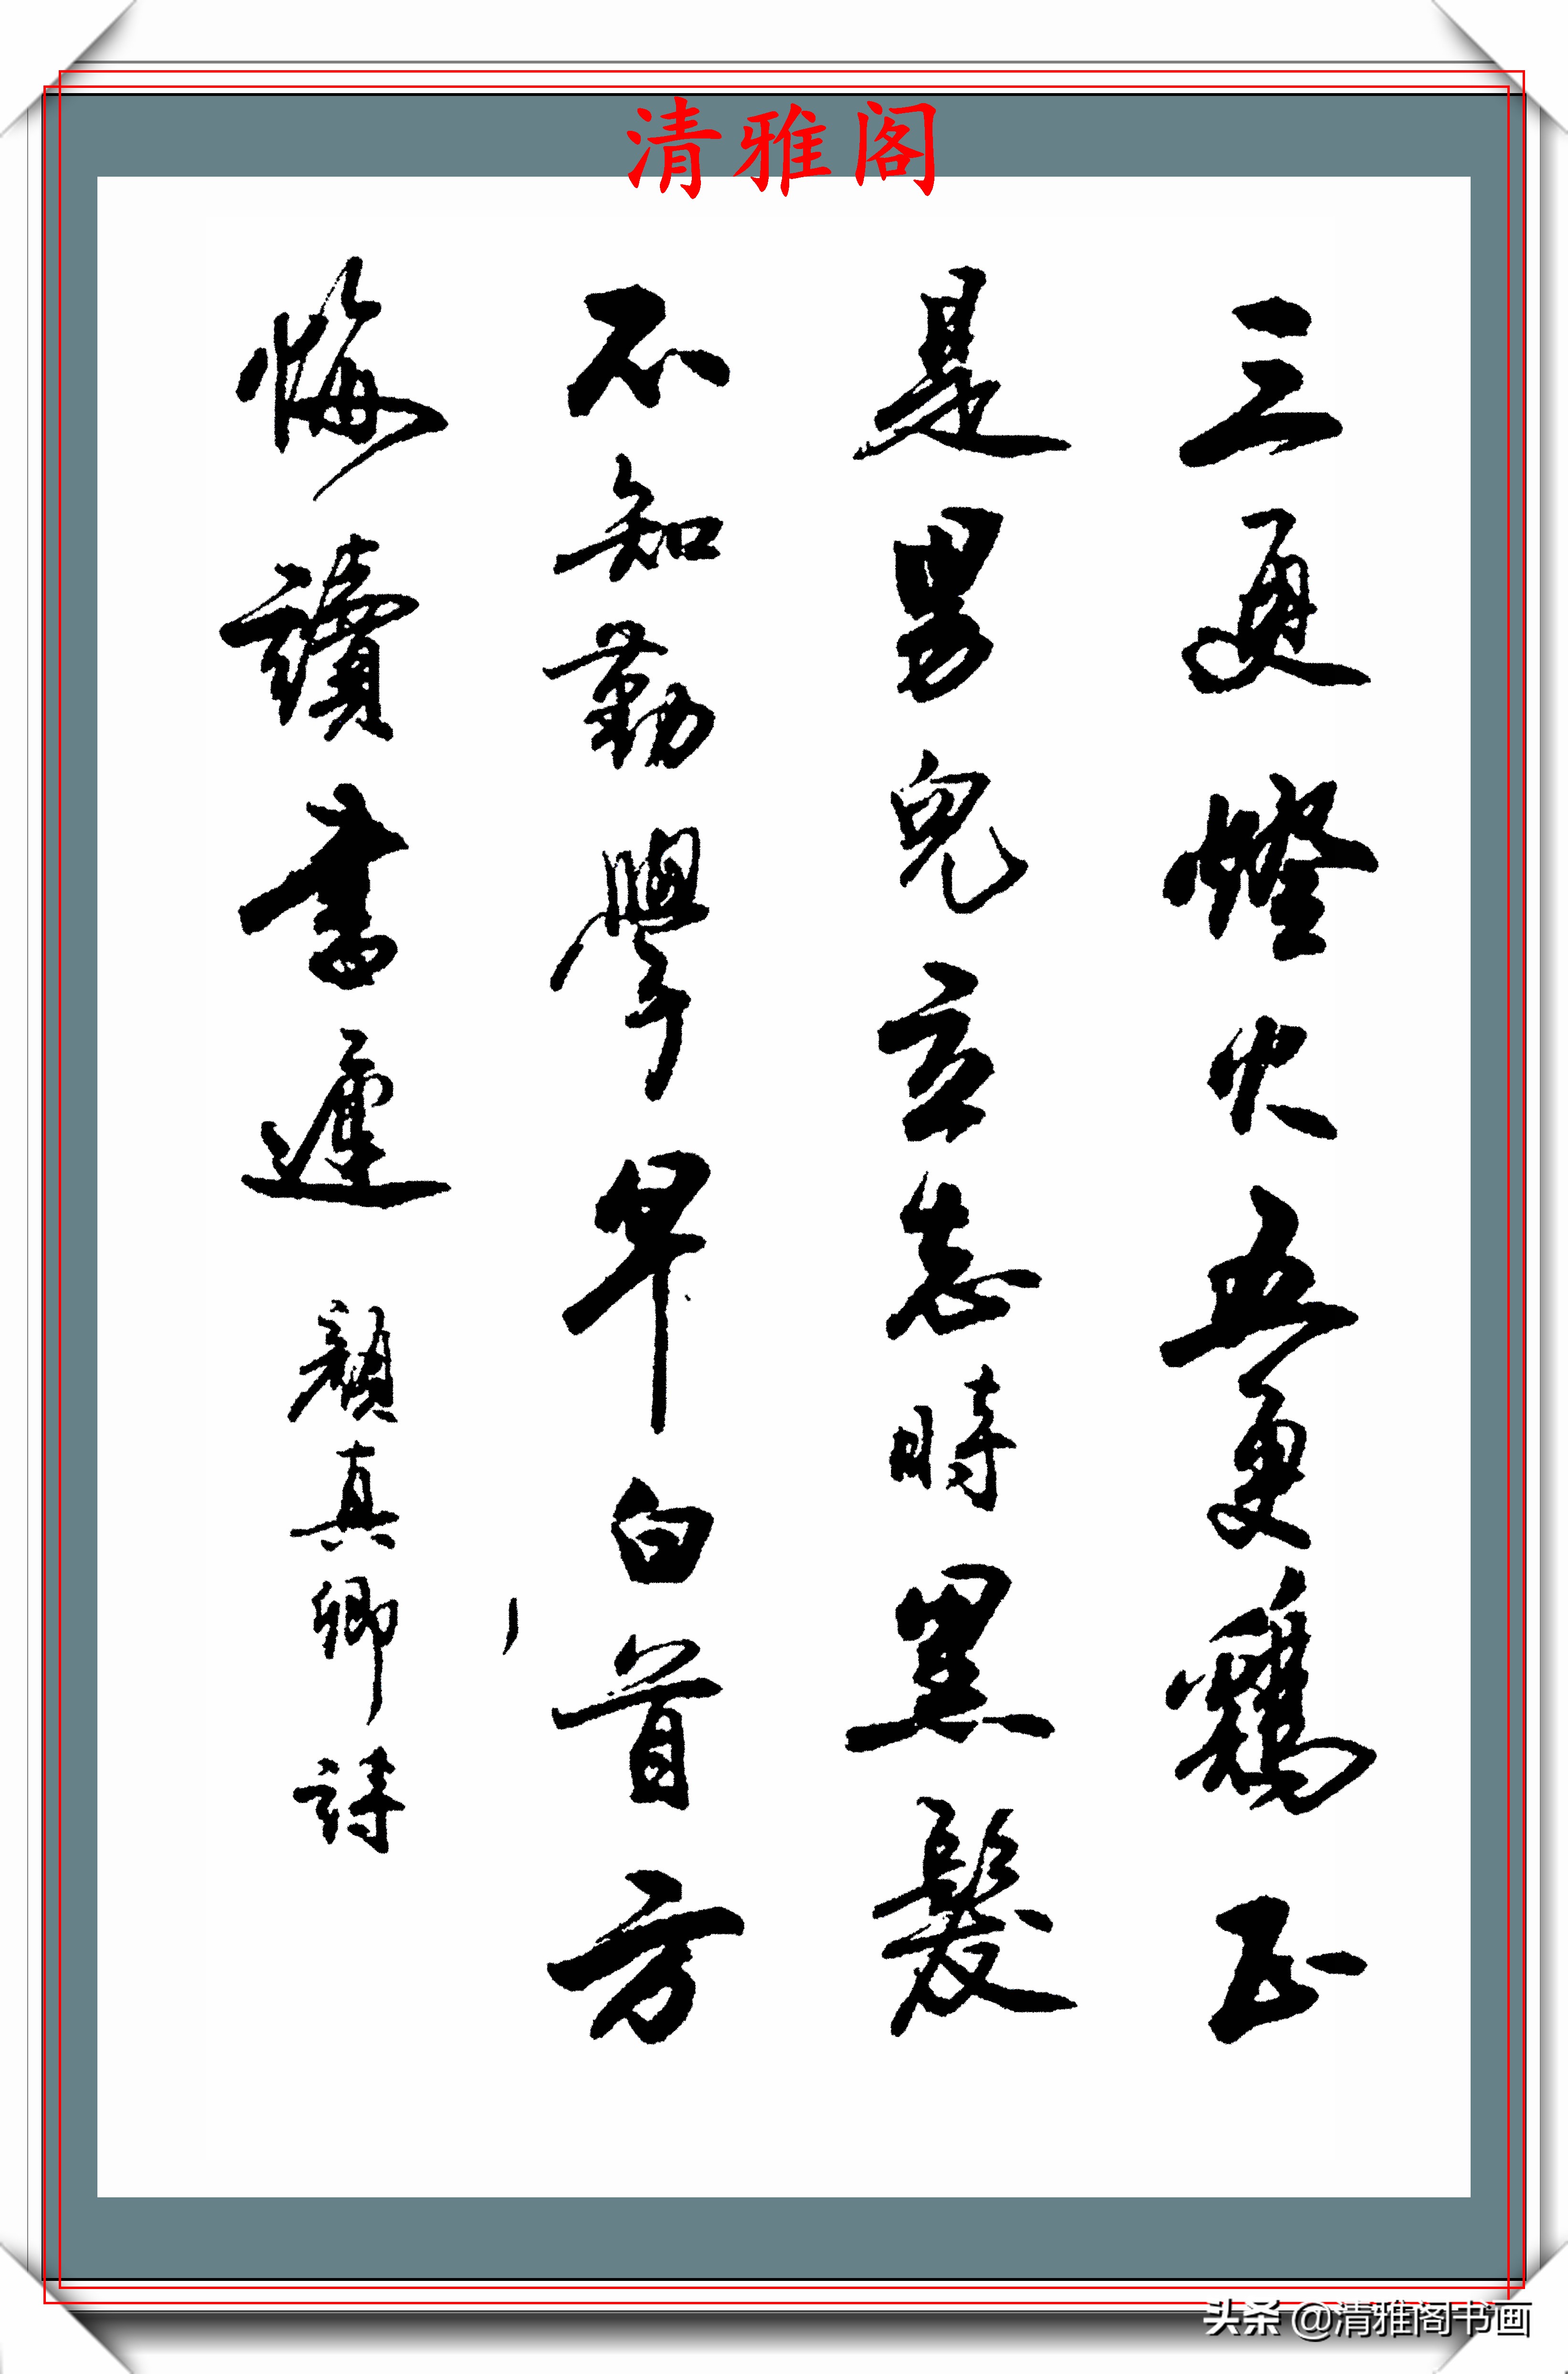 清雅阁
三更燈火五更鷄正
是男兒立志時黑髮
不知勤學早白首方
悔讀書遲
顏真卿詩
头条 @清雅阁书画